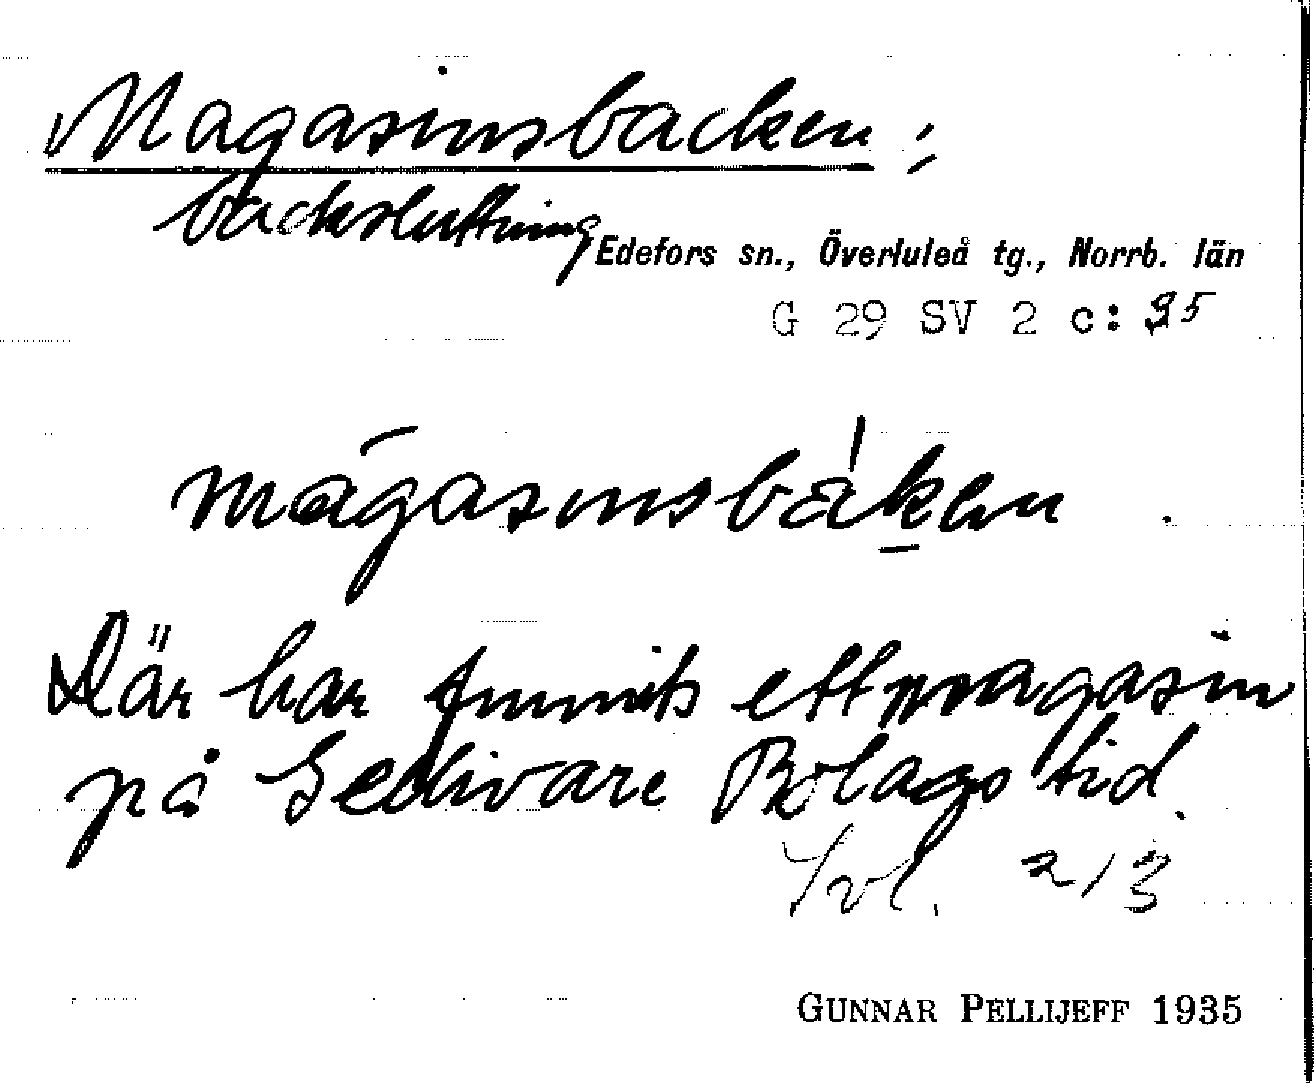 Magasinsbacken;
backsluttning
Edefors sn., Överluleå tg., Norrb. län
G 29 SV 2 c: 35
māgasinsbȧken
Där har funnits ett magasin
på Gellivare Bolags tid.
213
GUNNAR PELLIJEFF 1935